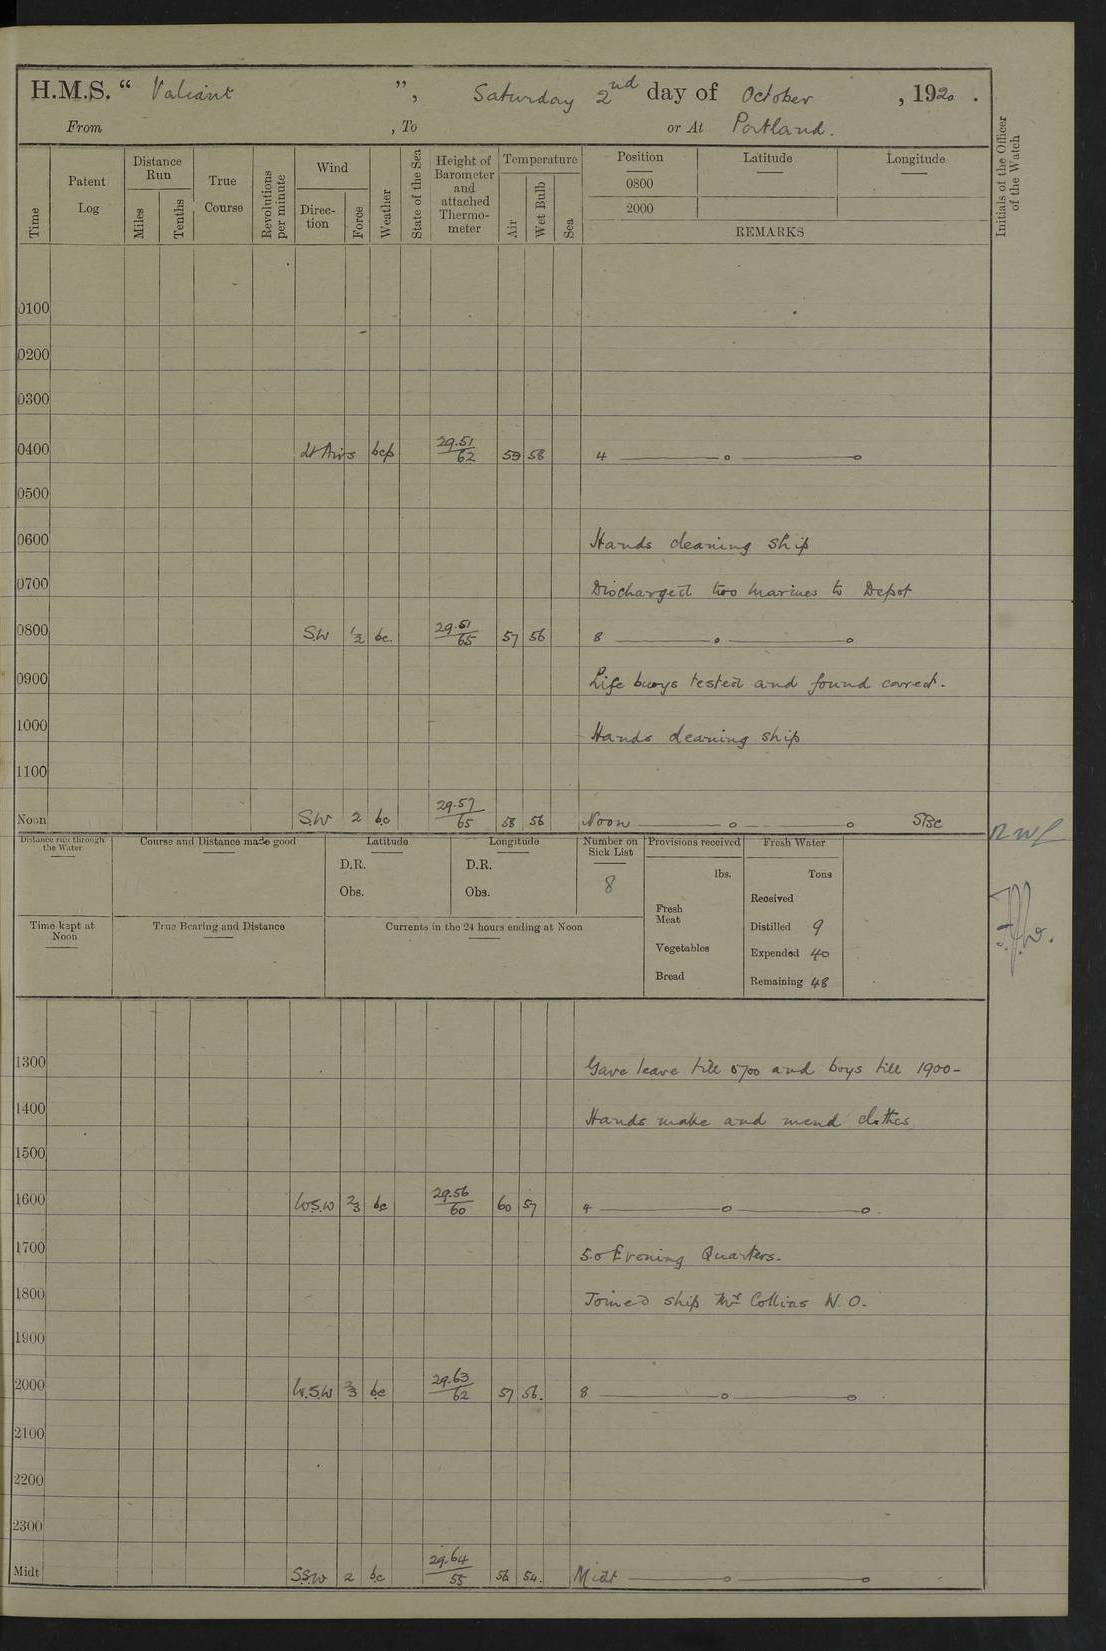 H.M.S. “ Valiant ”, Saturday 2nd day of October , 1920 .
From , To or At Portland.
Time
Patent Log
Distance Run
Miles
Tenths
True Course
Revolutions per minute
Wind
Direc- tion
Force
Weather
State of the Sea
Height of Barometer and attached Thermo- meter
Temperature
Air
Wet Bulb
Sea
Position
0800
2000
Latitude
Longitude
REMARKS
Initials of the Officer of the Watch
0100
0200
0300
0400 Lt Airs bcp 29.51/62 59 58 4
0500
0600 Hands cleaning ship
0700 Discharged two marines to Depot
0800 S.W 1/2 bc. 29.51/65 57 56 8
0900 Life buoys tested and found correct.
1000 Hands cleaning ship
1100
Noon S.W 2 bc 29.57/65 58 56 Noon
Distance run through the Water
Course and Distance made good
Latitude
D.R.
Obs.
Longitude
D.R.
Obs.
Number on Sick List
8
Provisions received
lbs.
Fresh Meat
Vegetables
Bread
Fresh Water
Tons
Received
Distilled 9
Expended 40
Remaining 48
Time kept at Noon
True Bearing and Distance
Currents in the 24 hours ending at Noon
1300 Gave leave till 0700 and boys till 1900-
1400 Hands make and mend clothes
1500
1600 W.S.W 2/3 bc 29.56/60 60 57 4
1700 5.0 Evening Quarters.
1800 Joined ship Mr Collins W.O.
1900
2000 W.S.W 2/3 bc 29.63/62 57 56. 8
2100
2200
2300
Midt S.S.W 2 bc 29.64/55 56 54. Midt